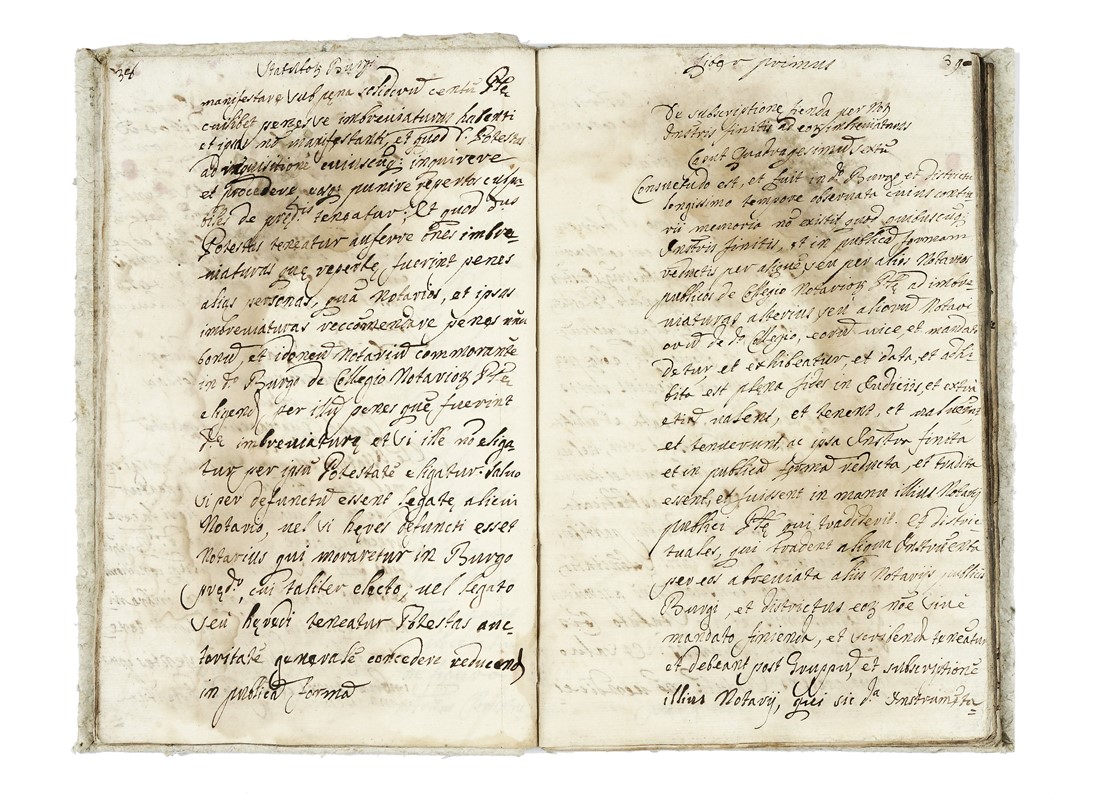 Statutoꝝ Burgi
manifestare sub pena solidorũ centũ Ptę
cuilibet penes se imbreviaturas habenti
et ipsas nõ manifestanti, et quod D. Potestas
ad inquisitione cuiuscuq; inquirere
et procedere, punire repertos culpa-
biles de prędis teneatur; Et quod dus
Potestas teneatur auferre ões imbre-
viaturas quę repertę fuerint penes
alias personas, quã Notarios, et ipsas
imbreviaturas reccomendare penes unu
bonũ, et idoneũ Notariũ commorantẽ
in do Burgo de Collegio Notarioꝝ Ptę
eligend per illũ penes quẽ fuerint
dę imbreviaturę et si ille nõ eliga-
tur per ipsũ Potestatẽ eligatur. Salvo
si per defunctũ essent legatę alicui
Notario, uel si hęres defuncti esset
Notarius qui moraretur in Burgo
pręd.o, cui taliter electo, uel legato
seu hęredi teneatur Potestas auc-
toritatẽ generalẽ concedere reducend
in publicã formã
Liber primus 39
De subscriptione fienda per
Instris finitis ad eoꝝ imbreviaturas
Capt Quadragesimũ Sextũ
Consuetudo est, et fuit in do Burgo, et districtu
longissimo tempore observata cuius contra-
rii memoria nõ existit quod quibuscuq;
Instris finitis, et in publicã formam
reductis per aliquẽ seu per alios Notarios
publicos de Collegio Notarioꝝ Ptę ad imbre-
viaturas alterius seu aliorũ Notari
orũ de do Collegio, eorũ vice, et mandato
detur et exhibeatur, et data, et adhi-
bita est plęna fides in Iudiciis, et extra
etiã valent, et tenent, et valuerunt
et tenuerunt ac ipsa Instra finita
et in publicã formã reducta, et tradita
essent, et fuissent in manu illius Notarij
publici Ptę qui tradiderit. et distric-
tuales, qui tradent aliqua Instrumenta
per eos abreviata aliis Notarijs publicis
Burgi, et districtus eoꝝ nõe sive
mandato finienda, et scribenda teneantur
et debeant post Gruppũ, et subscriptionẽ
illius Notarij, qui sic da Instrumęta-